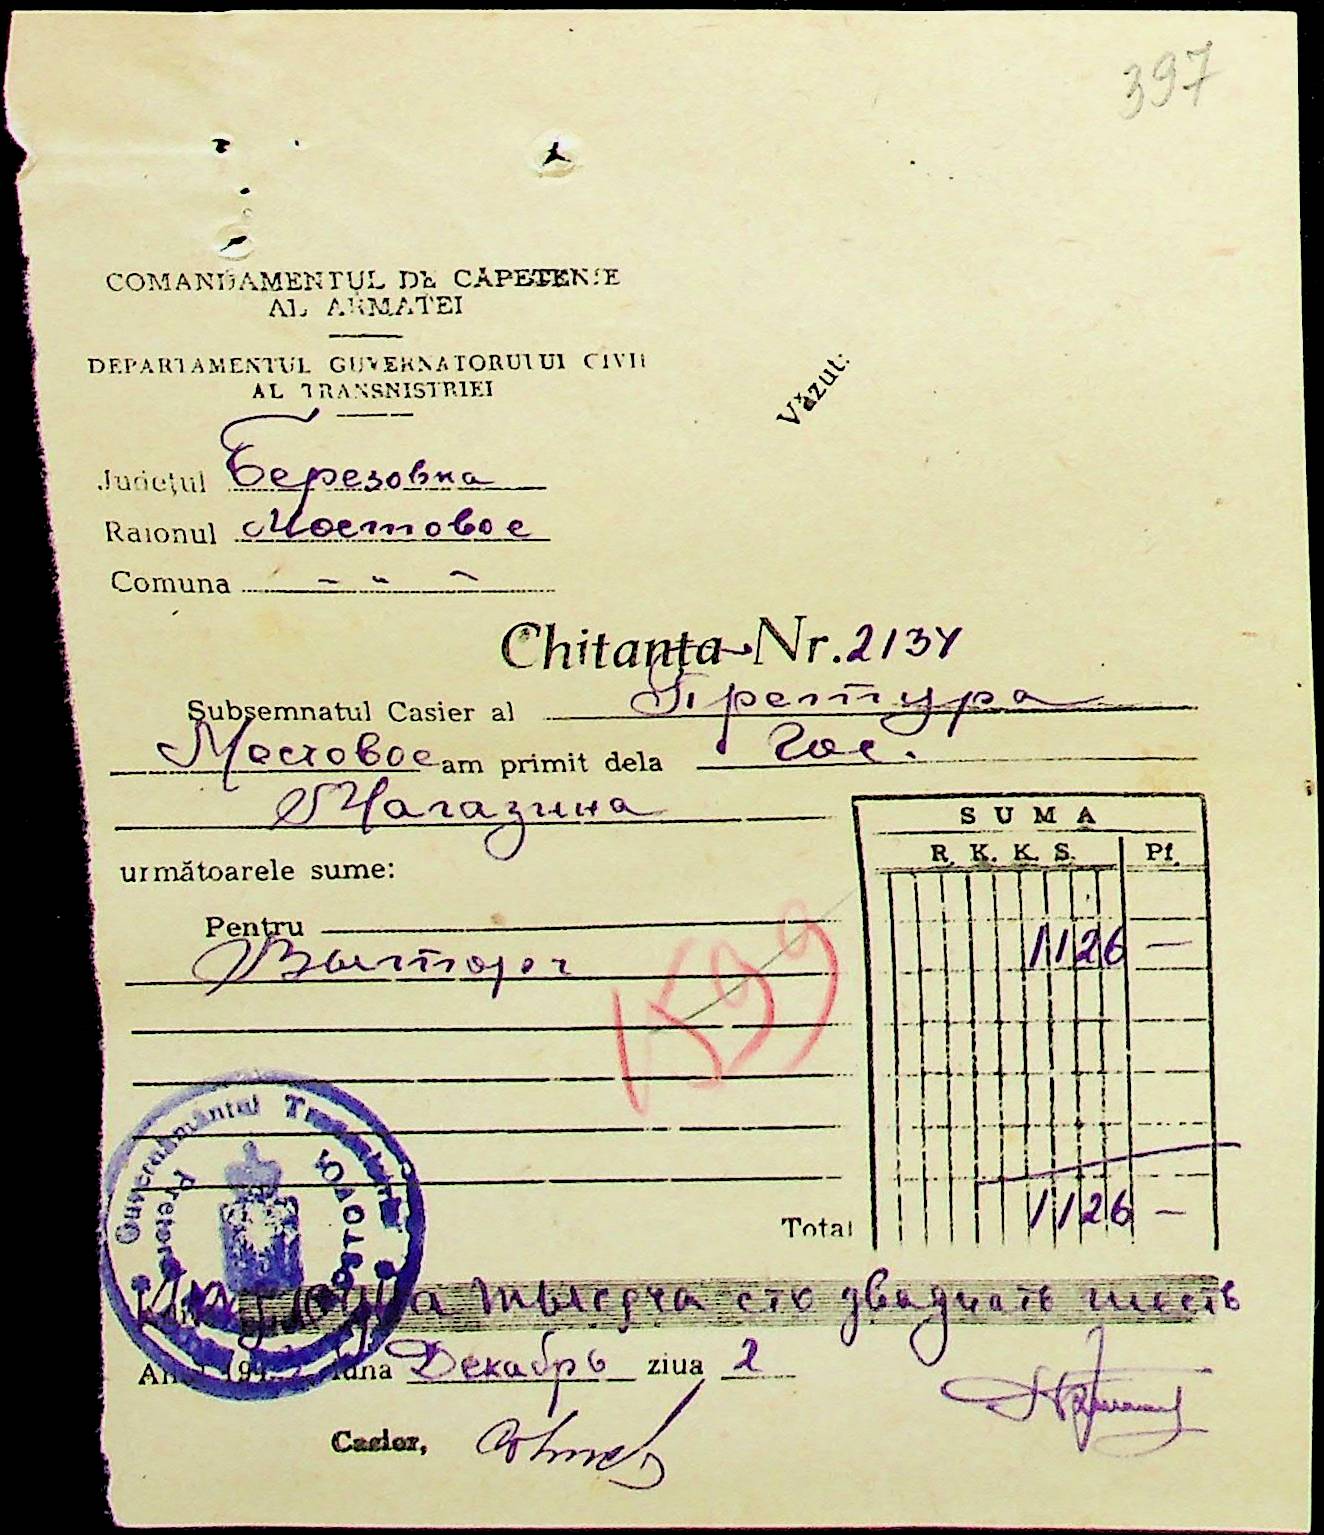 397
COMANDAMENTUL DE CĂPETENIE
AL ARMATEI
DEPARTAMENTUL GUVERNATORULUI CIVIL
AL TRANSNISTRIEI
Văzut:
Județul Березовка
Raionul Мостовое
Comuna - - -
Chitanța Nr. 2134
Subsemnatul Casier al Претура
Мостовое am primit dela Гос.
Магазина
SUMA
R. K. K. S. Pf.
următoarele sume:
Pentru
Выторг 1126 —
1599
Guvernământul Transnistriei
Pretura
Total 1126 —
Одна тысяча сто двадцать шесть
Anul 194 luna Декабрь ziua 2
Casier,